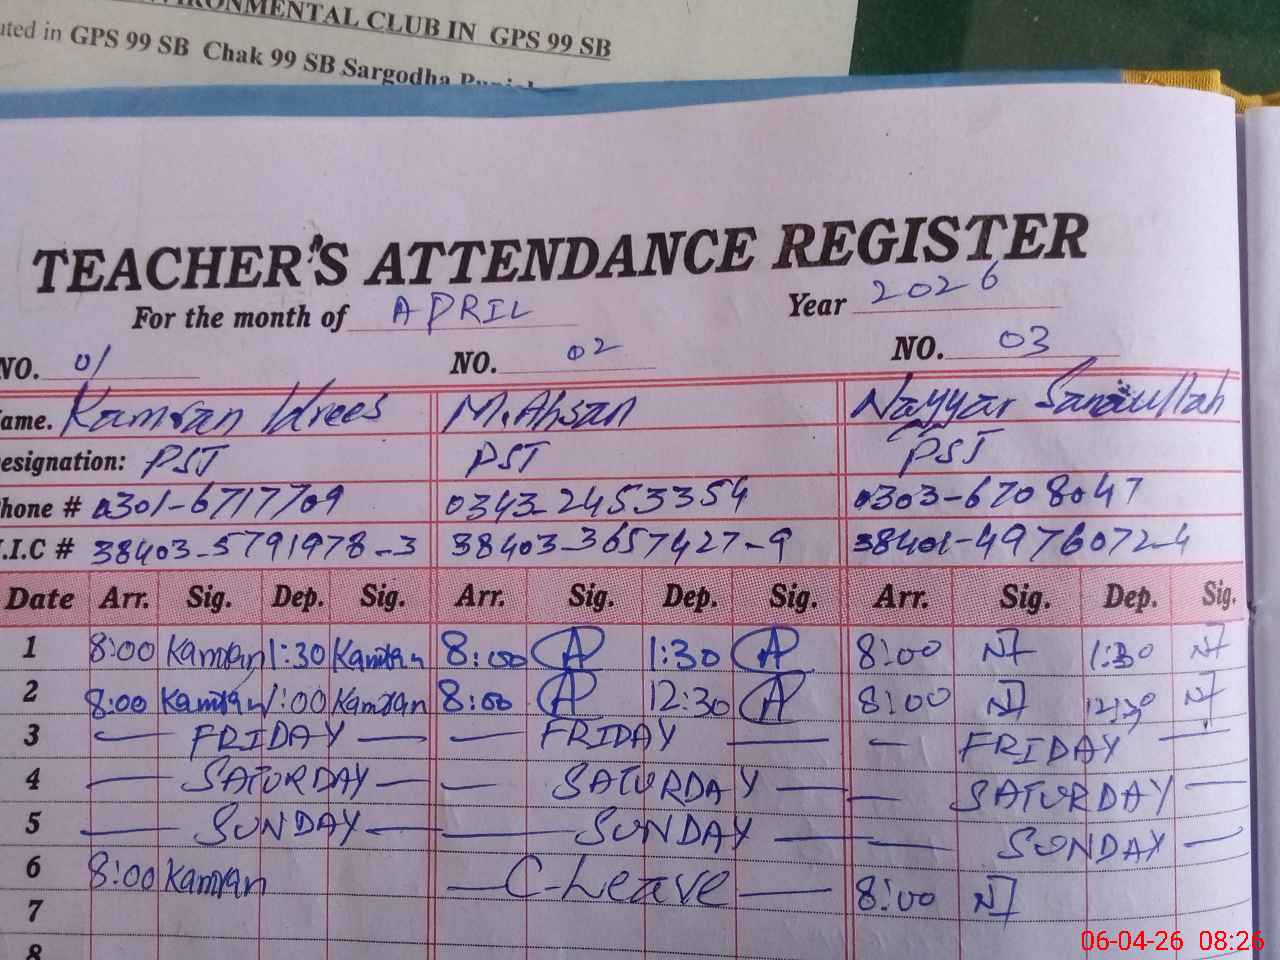 IRONMENTAL CLUB IN GPS 99 SB
uted in GPS 99 SB Chak 99 SB Sargodha
TEACHER'S ATTENDANCE REGISTER
For the month of APRIL Year 2026
NO. 01 NO. 02 NO. 03
ame. Kamran Idrees M.Ahsan Nayyar Sanaullah
esignation: PST PST PST
hone # 0301-6717709 0343-2453354 0303-6708047
.I.C # 38403-5791978-3 38403-3657427-9 38401-4976072-4
Date Arr. Sig. Dep. Sig. Arr. Sig. Dep. Sig. Arr. Sig. Dep. Sig.
1 8:00 Kamran 1:30 Kamran 8:00 A 1:30 A 8:00 NI 1:30 NI
2 8:00 Kamran 1:00 Kamran 8:00 A 12:30 A 8:00 NI 12:30 NI
3 — FRIDAY — — FRIDAY — — FRIDAY —
4 — SATURDAY — — SATURDAY — — SATURDAY —
5 — SUNDAY — — SUNDAY — — SUNDAY —
6 8:00 Kamran — C-Leave — 8:00 NI
7
8
06-04-26 08:26